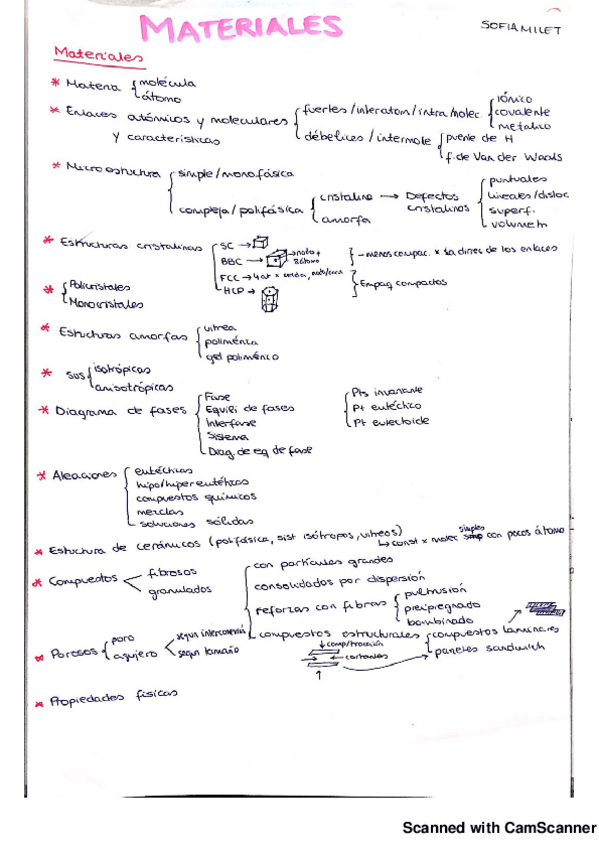 MATERIALES
SOFIA MILET
Materiales
* Materia { molécula
átomo
* Enlaces atómicos y moleculares { fuertes/interatom/intramolec { iónico
covalente
metálico
y características
débeiices/intermole { puente de H
f. de Van der Waals
* Microestructura { simple/monofásica
compleja/polifásica { cristalina → Defectos cristalinos { puntuales
lineales/disloc
superf.
volumetr
amorfa
* Estructuras cristalinas { SC →
BBC → } - menos compac. x la direc de los enlaces
FCC → 4at x celda,
HCP → } Empaq compactos
* { Policristales
Monocristales
* Estructuras amorfas { vitrea
polimérica
gel polimérico
* Sus { isotrópicas
anisotrópicas
* Diagrama de fases { Fase
Equili de fases
Interfase
Sistema
Diag. de eq de fase
{ Pts invariante
Pt eutéctico
Pt eutectoide
* Aleaciones { eutécticas
hipo/hipereutéticas
compuestos químicos
mezclas
soluciones sólidas
* Estructura de cerámicos (polifásica, sist isótropos, vitreos)
↳ const x molec simples con pocos átomo
* Compuestos < fibrosos
granulados
{ con partículas grandes
consolidados por dispersión
reforzas con fibras { pultrusión
preipregnado
bombinado
compuestos estructurales { compuestos laminares
paneles sandwich
* Porosos { poro
agujero > según interconexió
según tamaño
↓ comp/tracción
← cortantes
↑
* Propiedades físicas
Scanned with CamScanner